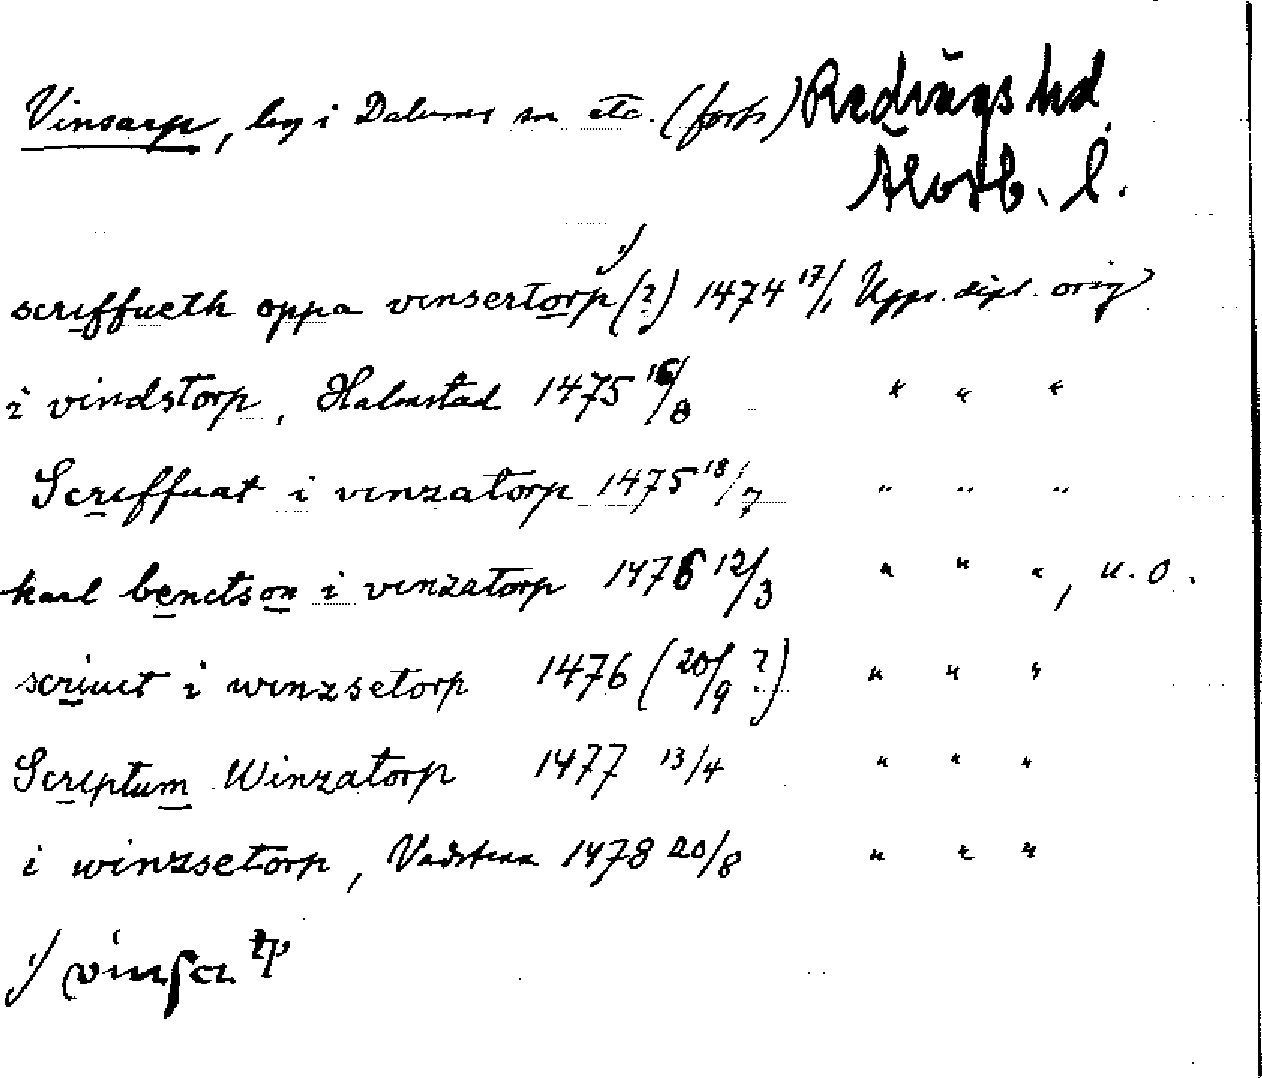 Vinsarp, by i Dalums sn etc. (forts) Redvägs hd
Älvsb. l.
scriffueth oppa vinsertorp (?) 1) 1474 17/1 Upps. dipl. orig
i vindstorp, Halmstad 1475 16/8 " " "
Scriffuat i vinzatorp 1475 18/7 " " "
karl benctson i vinzatorp 1476 12/3 " " ", u. o.
scriuit i winzsetorp 1476 (20/9 ?) " " "
Scriptum Winzatorp 1477 13/4 " " "
i winzsetorp, Vadstena 1478 20/8 " " "
1)